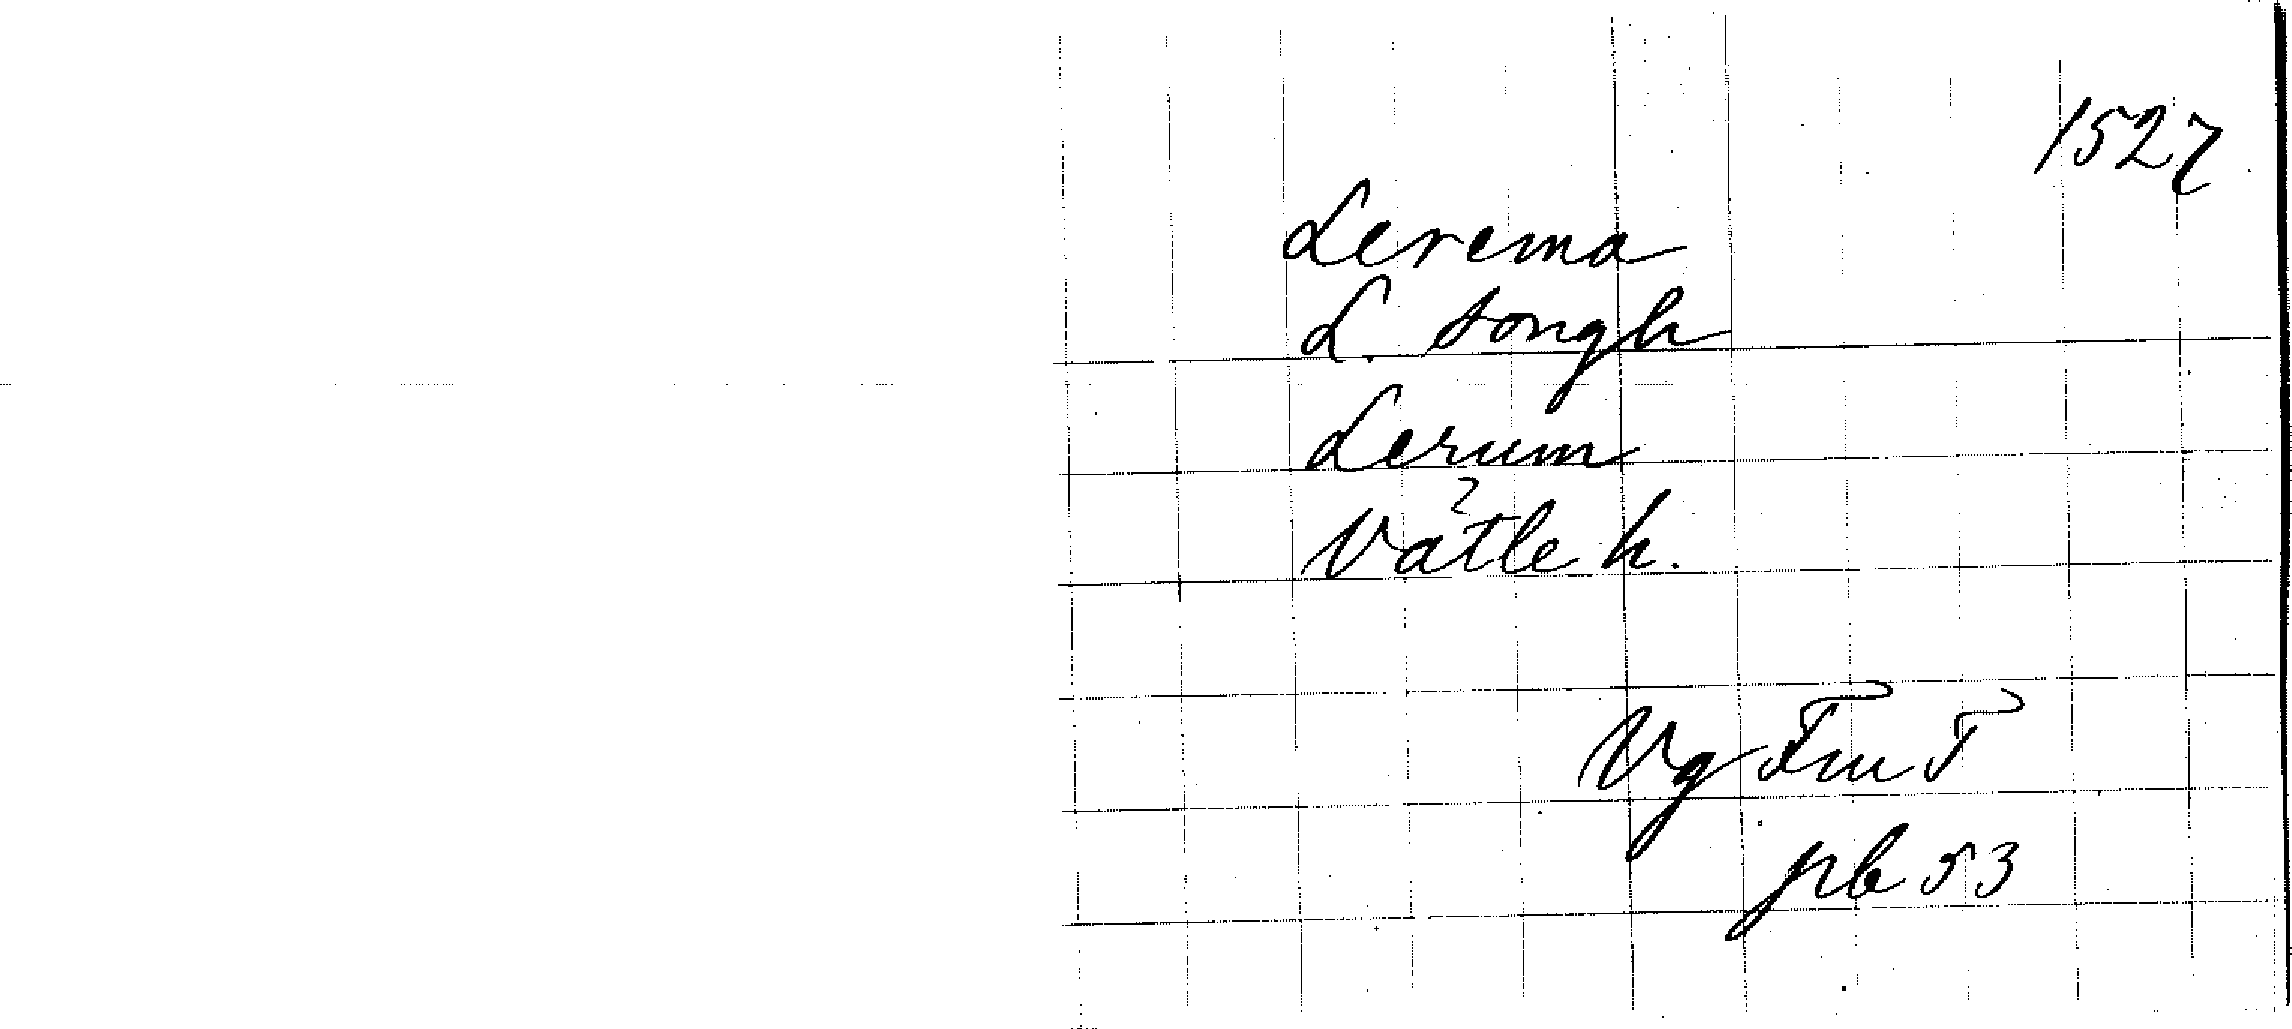 1527
Lerema
L. songh
Lerum
Vätle h.
Vg Fm T
pb 53